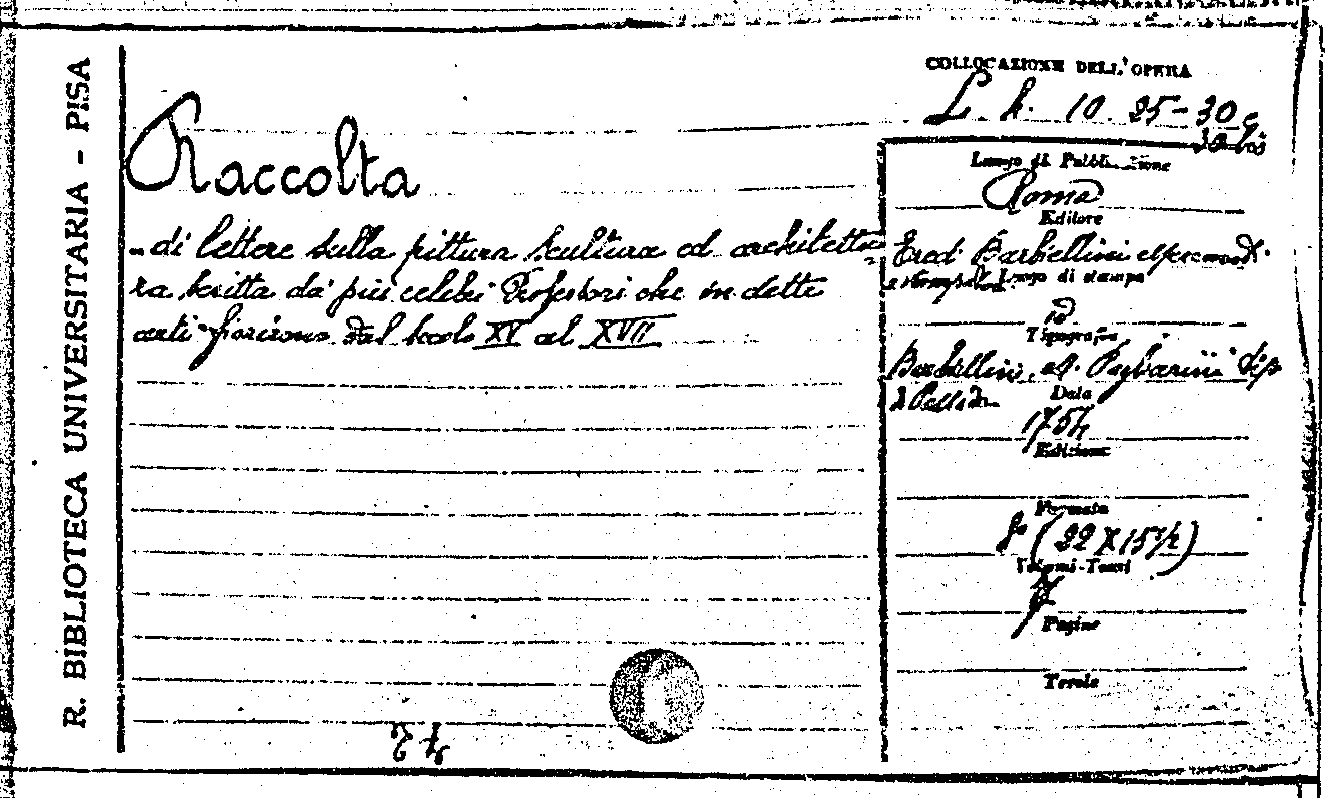 R. BIBLIOTECA UNIVERSITARIA - PISA
COLLOCAZIONE DELL'OPERA
L. h. 10 25-30 e
30 bis
Raccolta
... di lettere sulla pittura scultura ed architettu-
ra scritta da' più celebri Professori che in dette
arti fiorirono dal secolo XV al XVII
Luogo di Pubblicazione
Roma
Editore
Eredi Barbiellini
Luogo di stampa
id
Tipografia
Barbiellini, Pagliarini
Data
1754
Edizione
Formato
8° (22 X 15 1/2)
Volumi-Tomi
7
Pagine
Tavole